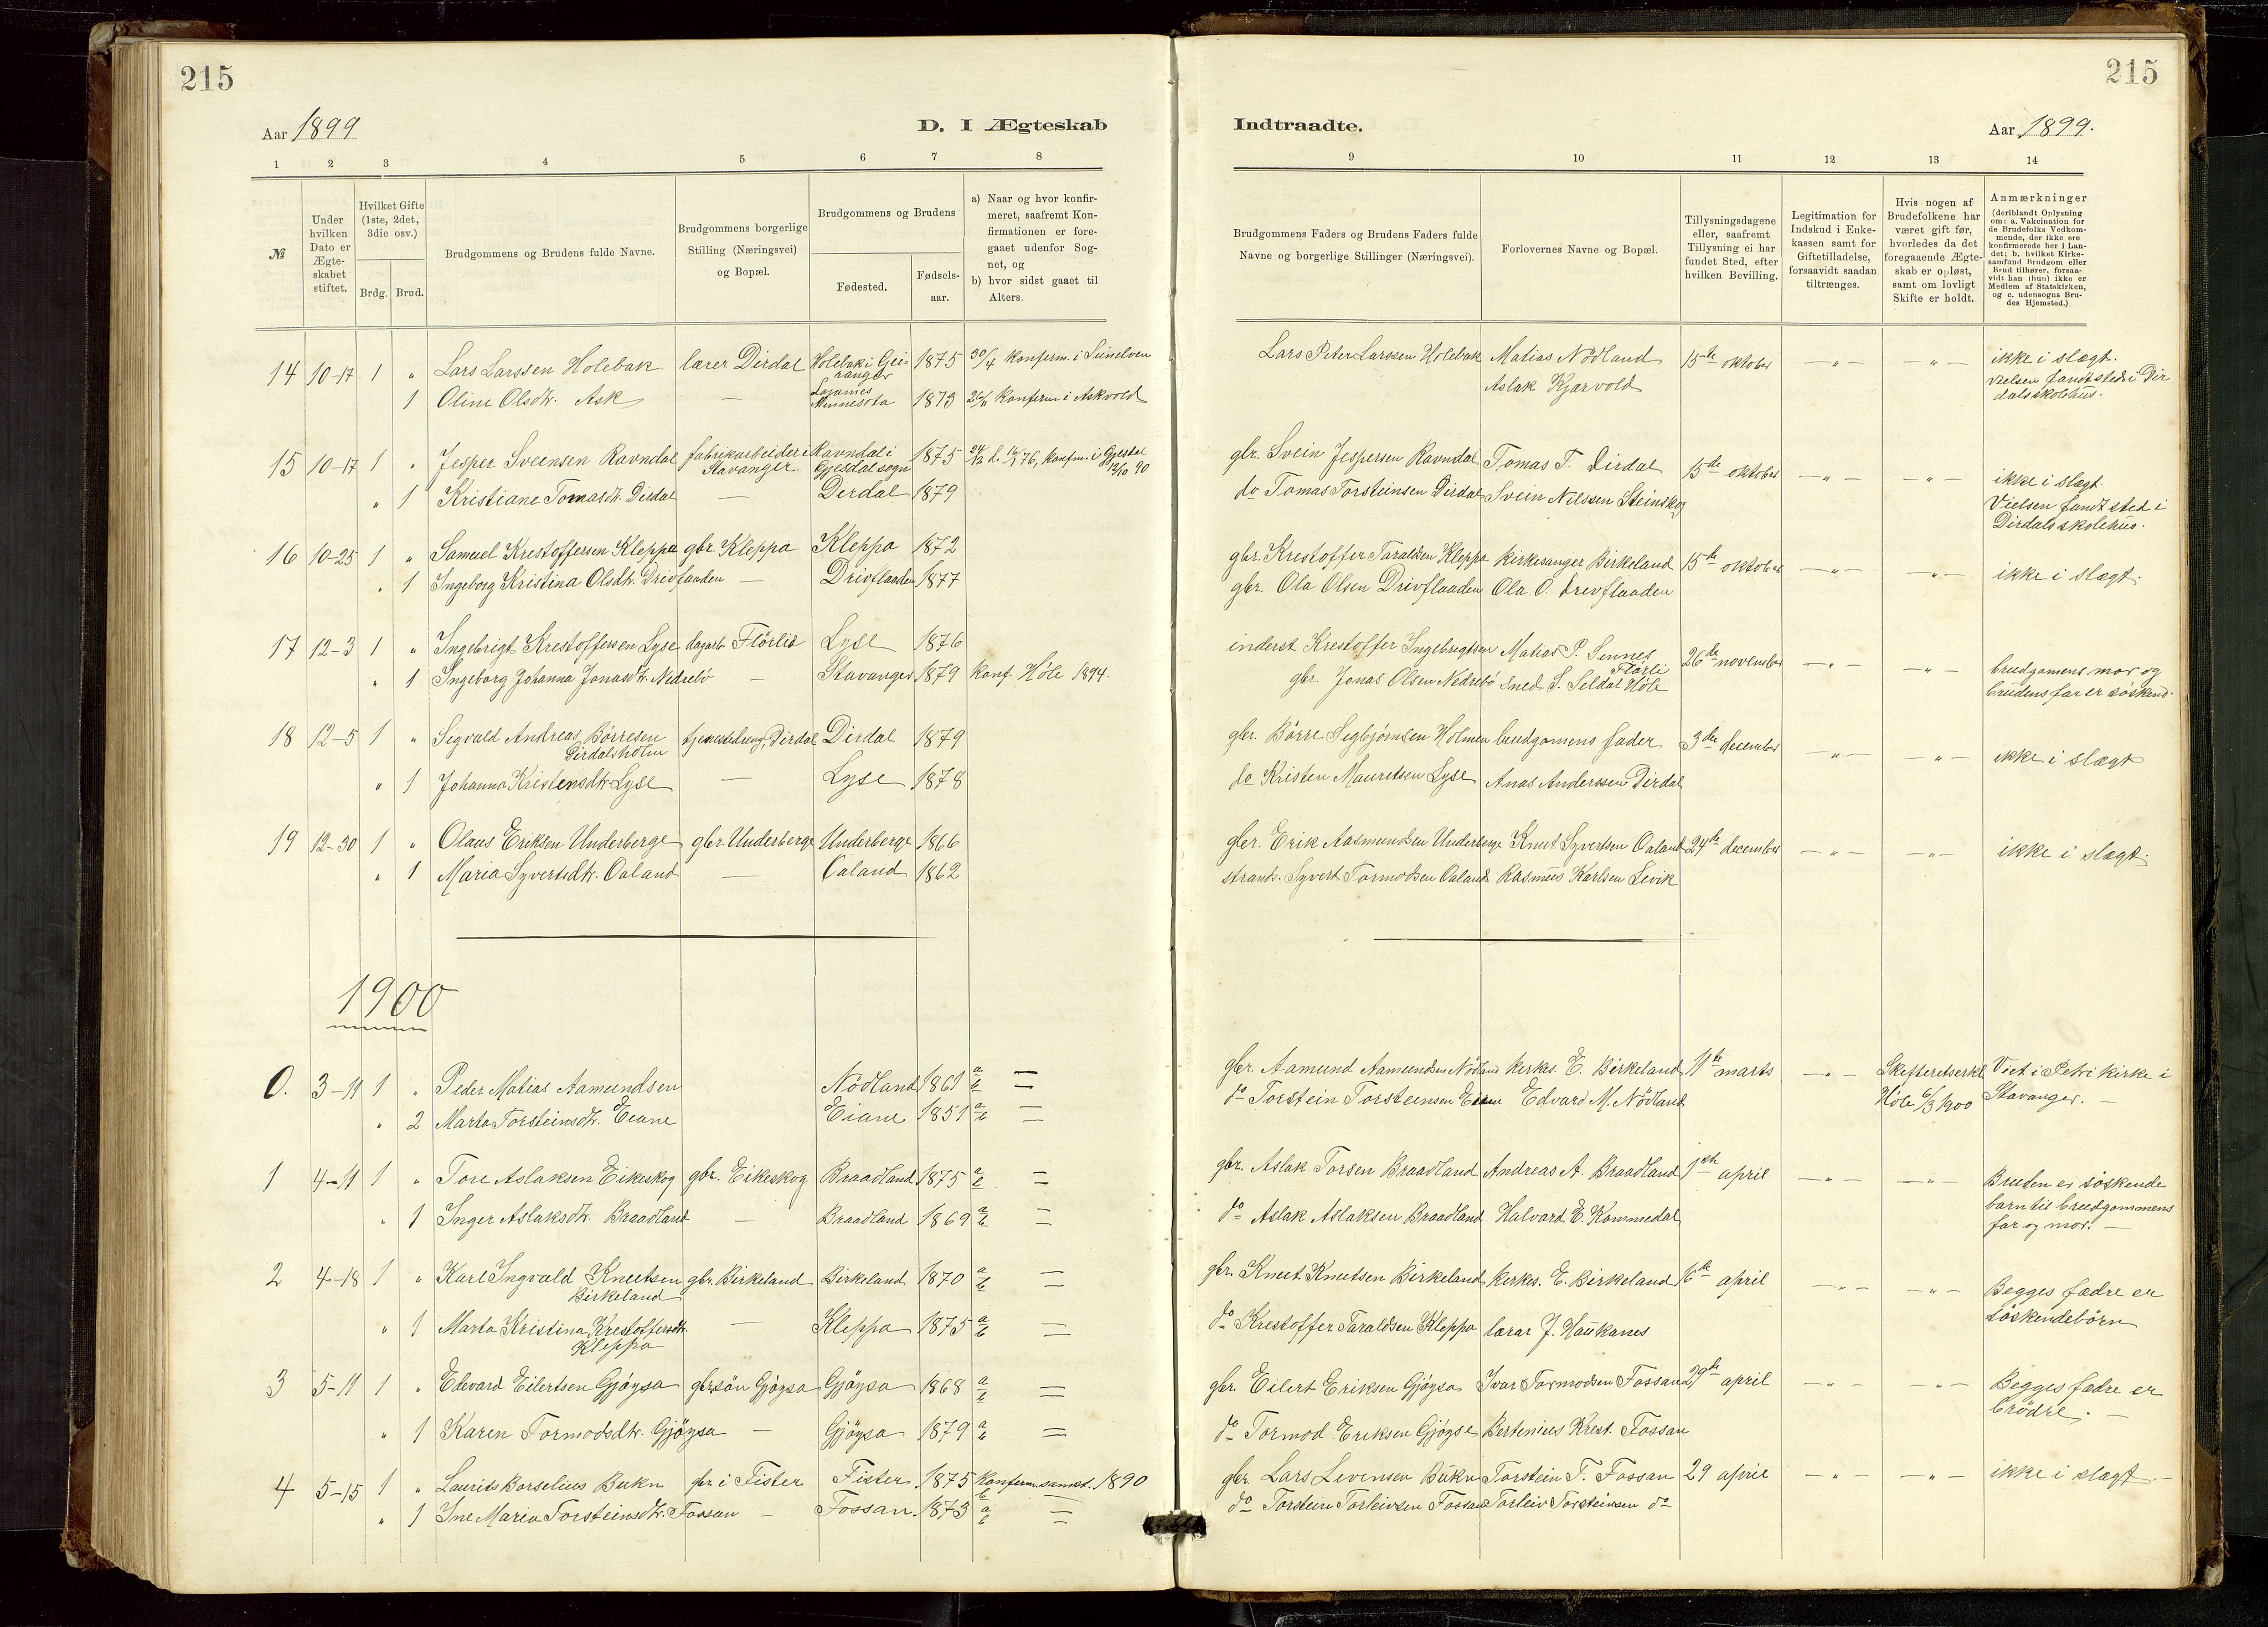 215
Aar 1899
D. I Ægteskab
1 2 3 4 5 6 7 8
№
Under hvilken Dato er Ægteskabet stiftet.
Hvilket Gifte (1ste, 2det, 3die osv.)
Brdg. Brud.
Brudgommens og Brudens fulde Navne.
Brudgommens borgerlige Stilling (Næringsvei) og Bopæl.
Brudgommens og Brudens
Fødested.
Fødsels-aar.
a) Naar og hvor konfir-
meret, saafremt Kon-
firmationen er fore-
gaaet udenfor Sog-
net, og
b) hvor sidst gaaet til
Alters.
14 10-17 1 „ Lars Larssen Holebak lærer Dirdal Holebak i Gei-
ranger 1875 30/4 konferm. i
1 Oline Olsdtr. Ask — Minnesota 1873 konferm i Askvold
15 10-17 1 „ Jesper Sveinsen Ravndal fabrikarbeider i Stavanger Ravndal i Gjesdal sogn 1875 konfm. i Gjesdal
„ 1 Kristiane Tomasdtr. Dirdal — Derdal 1879
16 10-25 1 „ Samuel Krestoffersen Kleppa gbr. Kleppa Kleppa 1872
„ 1 Ingeborg Kristina Olsdtr. Drivflaaden — Drivflaaden 1877
17 12-3 1 „ Ingebrigt Krestoffersen Lyse dagarb. Flørlid Lyse 1876
„ 1 Ingeborg Johanna Jonasdtr. Nedrebø — Stavanger 1879 konf. Høle 1894.
18 12-5 1 „ Segvald Andreas Børresen
Dirdalsholm tjenestedreng, Dirdal Dirdal 1879
„ 1 Johanna Kristensdtr Lyse — Lyse 1878
19 12-30 1 „ Olaus Eriksen Underberge gbr. Underberge Underberge 1866
„ 1 Maria Syvertsdtr. Oaland — Oaland 1862
1900
0. 3-11 1 „ Peder Matias Aamundsen Nödland 1861 a/b =
„ 2 Marta Torsteinsdtr. Eiane Eiane 1851 a/b =
1 4-11 1 „ Tore Aslaksen Eikeskog gbr. Eikeskog Braadland 1875 a/b =
„ 1 Inger Aslaksdtr. Braadland — Braadland 1869 a/b =
2 4-18 1 „ Karl Ingvald Knutsen
Birkeland gbr. Birkeland Birkeland 1870 a/b =
„ 1 Marta Kristina Krestoffersdtr.
Kleppa — Kleppa 1875 a/b =
3 5-11 1 „ Edevard Eilertsen Gjöysa gbrsön Gjöysa Gjöysa 1868 a/b =
„ 1 Karen Tormodsdtr. Gjöysa — Gjöysa 1879 a/b =
4 5-15 1 „ Laurits Borselius Bukn gbr i Fister Fister 1875 konferm. sammest. 1890
„ 1 Ine Maria Torsteinsdtr. Fossan — Fossan. 1873 a/b =
215
Indtraadte.
Aar 1899.
9 10 11 12 13 14
Brudgommens Faders og Brudens Faders fulde
Navne og borgerlige Stillinger (Næringsvei).
Forlovernes Navne og Bopæl.
Tillysningsdagene
eller, saafremt
Tillysning ei har
fundet Sted, efter
hvilken Bevilling.
Legitimation for
Indskud i Enke-
kassen samt for
Giftetilladelse,
forsaavidt saadan
tiltrænges.
Hvis nogen af
Brudefolkene har
været gift før,
hvorledes da det
foregaaende Ægte-
skab er opløst,
samt om lovligt
Skifte er holdt.
Anmærkninger
(deriblandt Oplysning
om: a. Vakcination for
de Brudefolks Vedkom-
mende, der ikke ere
konfirmerede her i Lan-
det; b. hvilket Kirke-
samfund Brudgom eller
Brud tilhører, forsaa-
vidt han (hun) ikke er
Medlem af Statskirken,
og c. udensogns Bru-
des Hjemsted.)
Lars Peter Larssen Holebak Matias Nødland 15de oktober — „ — — „ — ikke i slægt.
Aslak Kjærvold vielsen fandt sted i Dir
dals skolehus.
gbr. Svein Jespersen Ravndal Tomas T. Dirdal 15de oktober — „ — — „ — ikke i slægt.
do Tomas Torsteinsen Dirdal Svein Nilssen Steinskog Vielsen fandt sted i
Dirdals skolehus.
gbr. Krestoffer Taraldsen Kleppa kirkesanger Birkeland 15de oktober — „ — — „ — ikke i slægt.
gbr. Ola Olsen Drivflaaden Ola O. Drevflaaden
inderst Krestoffer Ingebregtsen Matias P. Sennes
Flörli 26de november — „ — — „ — brudgomens mor og
gbr. Jonas Olsen Nedrebö sned. S. Seldal Høle brudens far er söskend.
gbr. Börre Segbjörnsen Holmen brudgomens fader 3die december — „ — — „ — ikke i slægt
do Kristen Mauritsen Lyse Anas Anderssen Dirdal
gbr. Erik Aasmundsen Underberge Knut Syvertsen Oaland 24de december — „ — — „ — ikke i slægt.
strands. Syvert Tormodsen Oaland Rasmus Karlsen Levik
gbr. Aamund Aamundsen Nödland kirkes. E. Birkeland 11te marts — „ — Skefteretserkl.
Høle 6/3 1900 Viet i Petri kirke i
Stavanger. —
do Torstein Torsteinsen Eiane Edvard M. Nödland
gbr. Aslak Torsen Braadland Andreas A. Braadland 1ste april — „ — — „ — Bruden er söskende
barn til brudgommens
far og mor. —
do Aslak Aslaksen Braadland Halvard E. Kommedal
gbr. Knut Knutsen Birkeland kirkes. E. Birkeland 16de april — „ — — „ — Begges fædre er
söskendebörn
do Krestoffer Taraldsen Kleppa lærar J. Haukanes
gbr. Eilert Eriksen Gjöysa Ivar Tormodsen Fossan 29de april — „ — — „ — Begges fædre er
brödre. —
do Tormod Eriksen Gjöyse Bertenius Krest. Fossan
gbr Lars Levensen Bukn Torstein T. Fossan 29 april — „ — — „ — ikke i slægt. —
do Torstein Torleivsen Fossan Torleiv Torsteinsen do